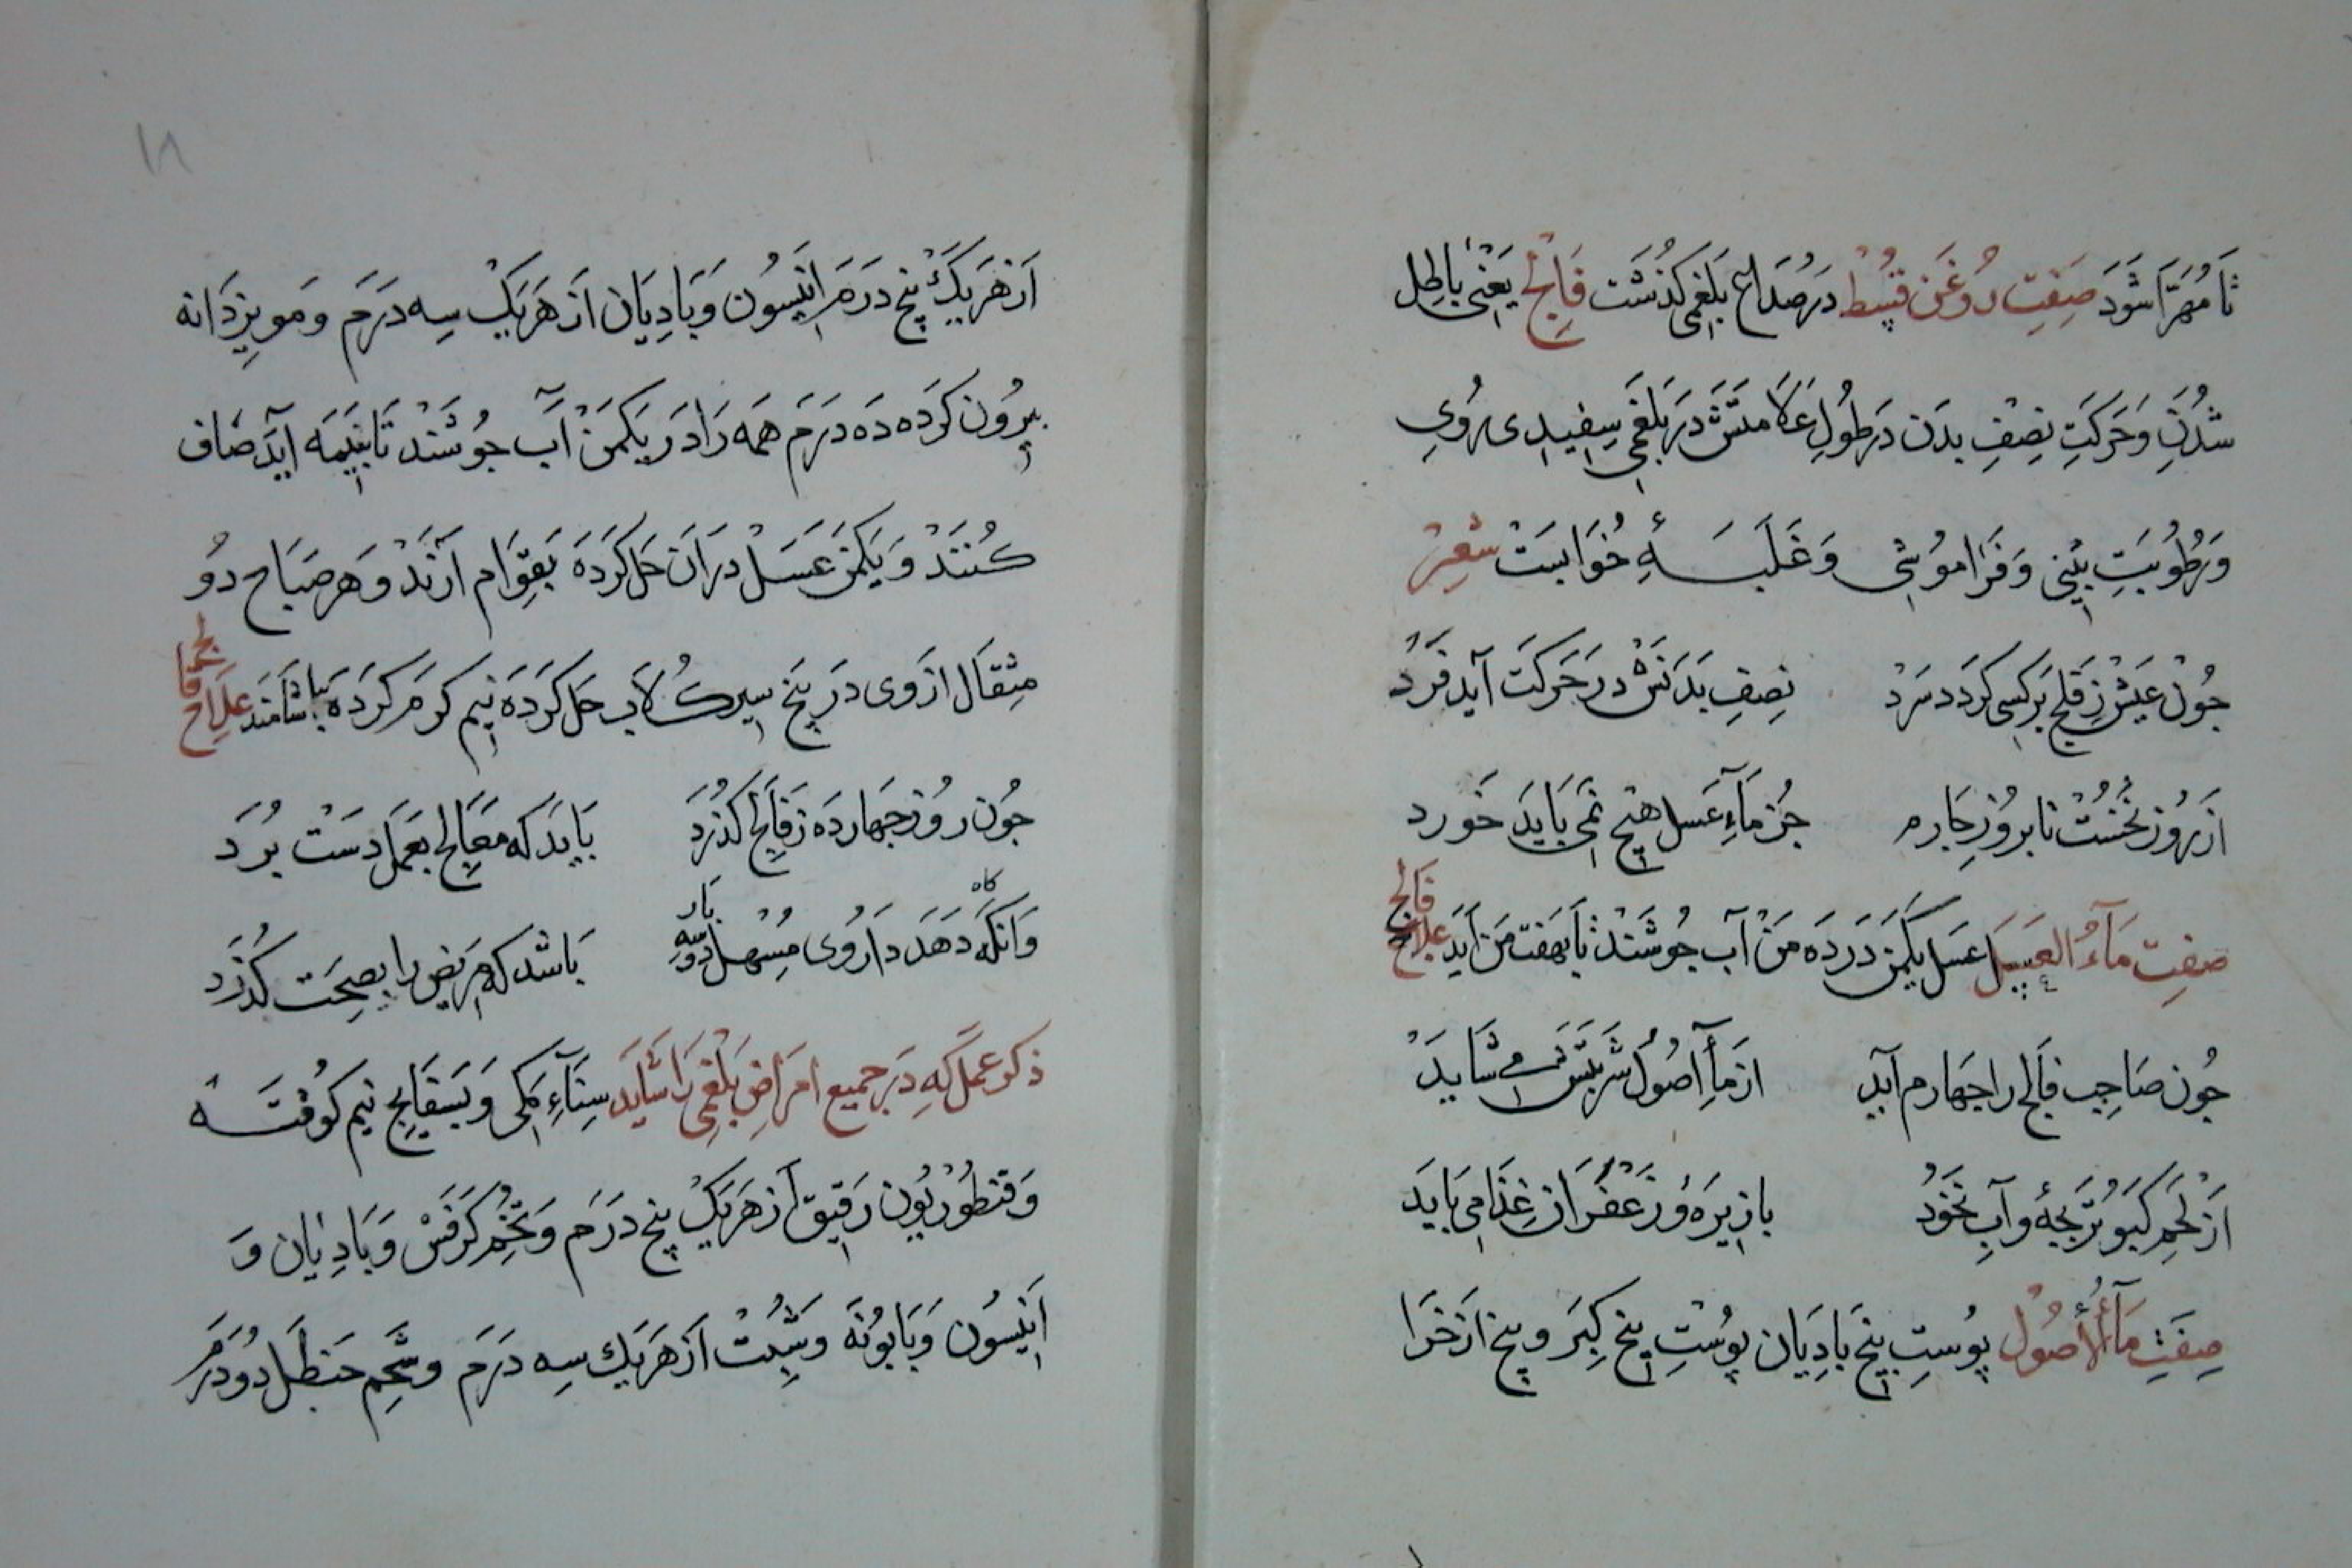 تَا مُهَرَّا شَوَدَ صِفِتِ رُوغَنِ قُسْط دَرصُدَاعِ بَلغمِی کَذُشْت فَالِجْ یَعْنِی بَاطِل
شُدَنِ وَحَرَکَتِ نِصْفِ بدَن دَرطُولِ عَلَامتَش دَربَلغَمِی سِفِیدِی رُویِ
وَرُطُوبَتِ بِینِی وَفَرامُوشِی وَغَلَبَـهٔ خُوَابسَتْ شعِرْ
جُونْ عَیشْ زِفَلجْ بَرکسِی کَردَد سَرَدْ نِصِفِ بَدَنَشْ درَحَرَکَتَ آید فَردْ
ازرُوزِ نُخُسْتْ تا بروُزِ جَارم جُز مَآءِ عَسل هِیچ نَمِی بَایَدَ خَورد
صفِتِ مَآءُ العَسِلَ عسل یکمَن دَردَه مَنْ آب جُوشَنْد تَابَهفت مَن آیَدَ علاج فالج
جُون صَاحِبِ فالج را جهَارم آید ازمَآءِ اُصُولْ شَربَتَش مے شَایدَ
ازْ لَحْمِ کَبوُتَربَچهٔ وآبِ نَخُودْ بازِیرَه وُزَعْفَرَان غِذَامِی بَایَدَ
صِفَتِ مَآءُالْأُصُولْ پوُستِ بیخ بَادِیَان پوُسْتِ بیخِ کِبَر وبیخ اَذخَر
اَزهَریَکْ پنج درَمَ اَنِیسُون وَبَادِیَان اَزهَریَکْ سِه درَمَ وَمَویز دَانه
بیرُون کَردَه دَه درَمَ هَمَه رَادَریَکمَنْ آب جوُشَند تَابنِیمَه آید صَاف
کـُننَدْ وَیَکمَن عَسَلْ درَانَ حَل کَردَه بَقِوَام آرَنْد وَهَرصَبَاح دوُ
مِثقَال ازَوی درَپنج سِیر کُلاَب حَل کَردَه نِیم کَرمَ کَردَه بیاشَامَند علاج فالج
جُون روُزجَهاردَه زِفَالِجْ کذُرَدْ بَایَدَ که مُعَالِج بعَمَل دَسَتْ بُرَد
وَانکَه کاه دَهَد دَارُوی مُسْهلْ دوُسه بَار بَاشَد که مَرِیض را بصِحَت کذُرَد
ذکرعمَل کِه دَرجمیعِ امرَاضِ بَلغَمِی رَاشَایَد سنَآءِ مَکِی وَبَسفَایِج نِیم کوُفتَه
وَقنطُوریُون رَقِیق ازهَریَکْ پنج درَمَ وَتُخْمِ کرَفَسْ وَبَادِیَان وَ
اَنِیسُون وَبَابوُنَه وَشِبْتْ ازهَریَك سِه درَمَ وشَحْمِ حَنظَل دوُدرَمَ
۱۸